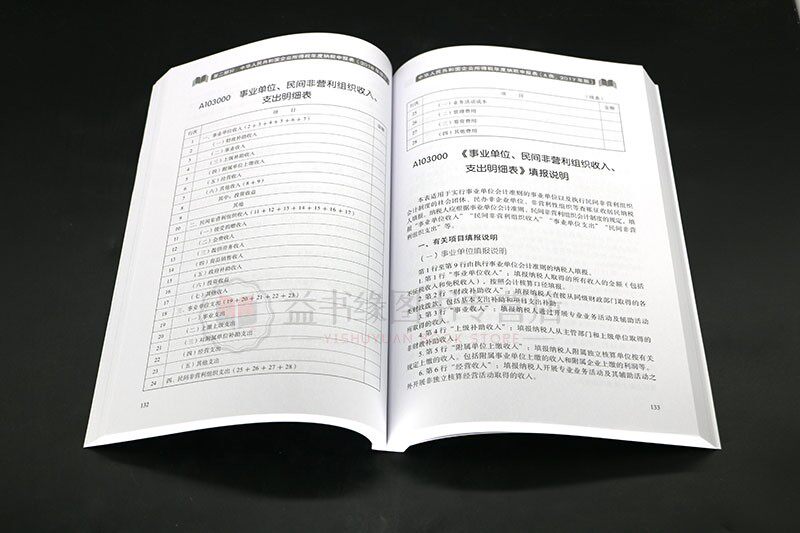 第二部分 中华人民共和国企业所得税年度纳税申报表
A103000 事业单位、民间非营利组织收入、
支出明细表
行次 项 目 金额
1 一、事业单位收入(2+3+4+5+6+7)
2 (一)财政补助收入
3 (二)事业收入
4 (三)上级补助收入
5 (四)附属单位上缴收入
6 (五)经营收入
7 (六)其他收入(8+9)
8 其中:投资收益
9 其他
10 二、民间非营利组织收入(11+12+13+14+15+16+17)
11 (一)接受捐赠收入
12 (二)会费收入
13 (三)提供劳务收入
14 (四)商品销售收入
15 (五)政府补助收入
16 (六)投资收益
17 (七)其他收入
18 三、事业单位支出(19+20+21+22+23)
19 (一)事业支出
20 (二)上缴上级支出
21 (三)对附属单位补助支出
22 (四)经营支出
23 (五)其他支出
24 四、民间非营利组织支出(25+26+27+28)
132
中华人民共和国企业所得税年度纳税申报表(A类,2017年版)
(续表)
行次 项 目 金额
25 (一)业务活动成本
26 (二)管理费用
27 (三)筹资费用
28 (四)其他费用
A103000 《事业单位、民间非营利组织收入、
支出明细表》填报说明
本表适用于实行事业单位会计准则的事业单位以及执行民间非营利组织
会计制度的社会团体、民办非企业单位、非营利性组织等查账征收居民纳税
人填报。纳税人应根据事业单位会计准则、民间非营利组织会计制度的规定,填
报“事业单位收入”“民间非营利组织收入”“事业单位支出”“民间非营
利组织支出”等。
一、有关项目填报说明
(一)事业单位填报说明
第1行至第9行由执行事业单位会计准则的纳税人填报。
1.第1行“事业单位收入”:填报纳税人取得的所有收入的金额(包括
不征税收入和免税收入),按照会计核算口径填报。
2.第2行“财政补助收入”:填报纳税人直接从同级财政部门取得的各
类财政拨款,包括基本支出补助和项目支出补助。
3.第3行“事业收入”:填报纳税人通过开展专业业务活动及辅助活动
所取得的收入。
4.第4行“上级补助收入”:填报纳税人从主管部门和上级单位取得的
非财政补助收入。
5.第5行“附属单位上缴收入”:填报纳税人附属独立核算单位按有关
规定上缴的收入。包括附属事业单位上缴的收入和附属企业上缴的利润等。
6.第6行“经营收入”:填报纳税人开展专业业务活动及其辅助活动之
外开展非独立核算经营活动取得的收入。
133
益书缘图书专营店
YISHUYUAN BOOK STORE